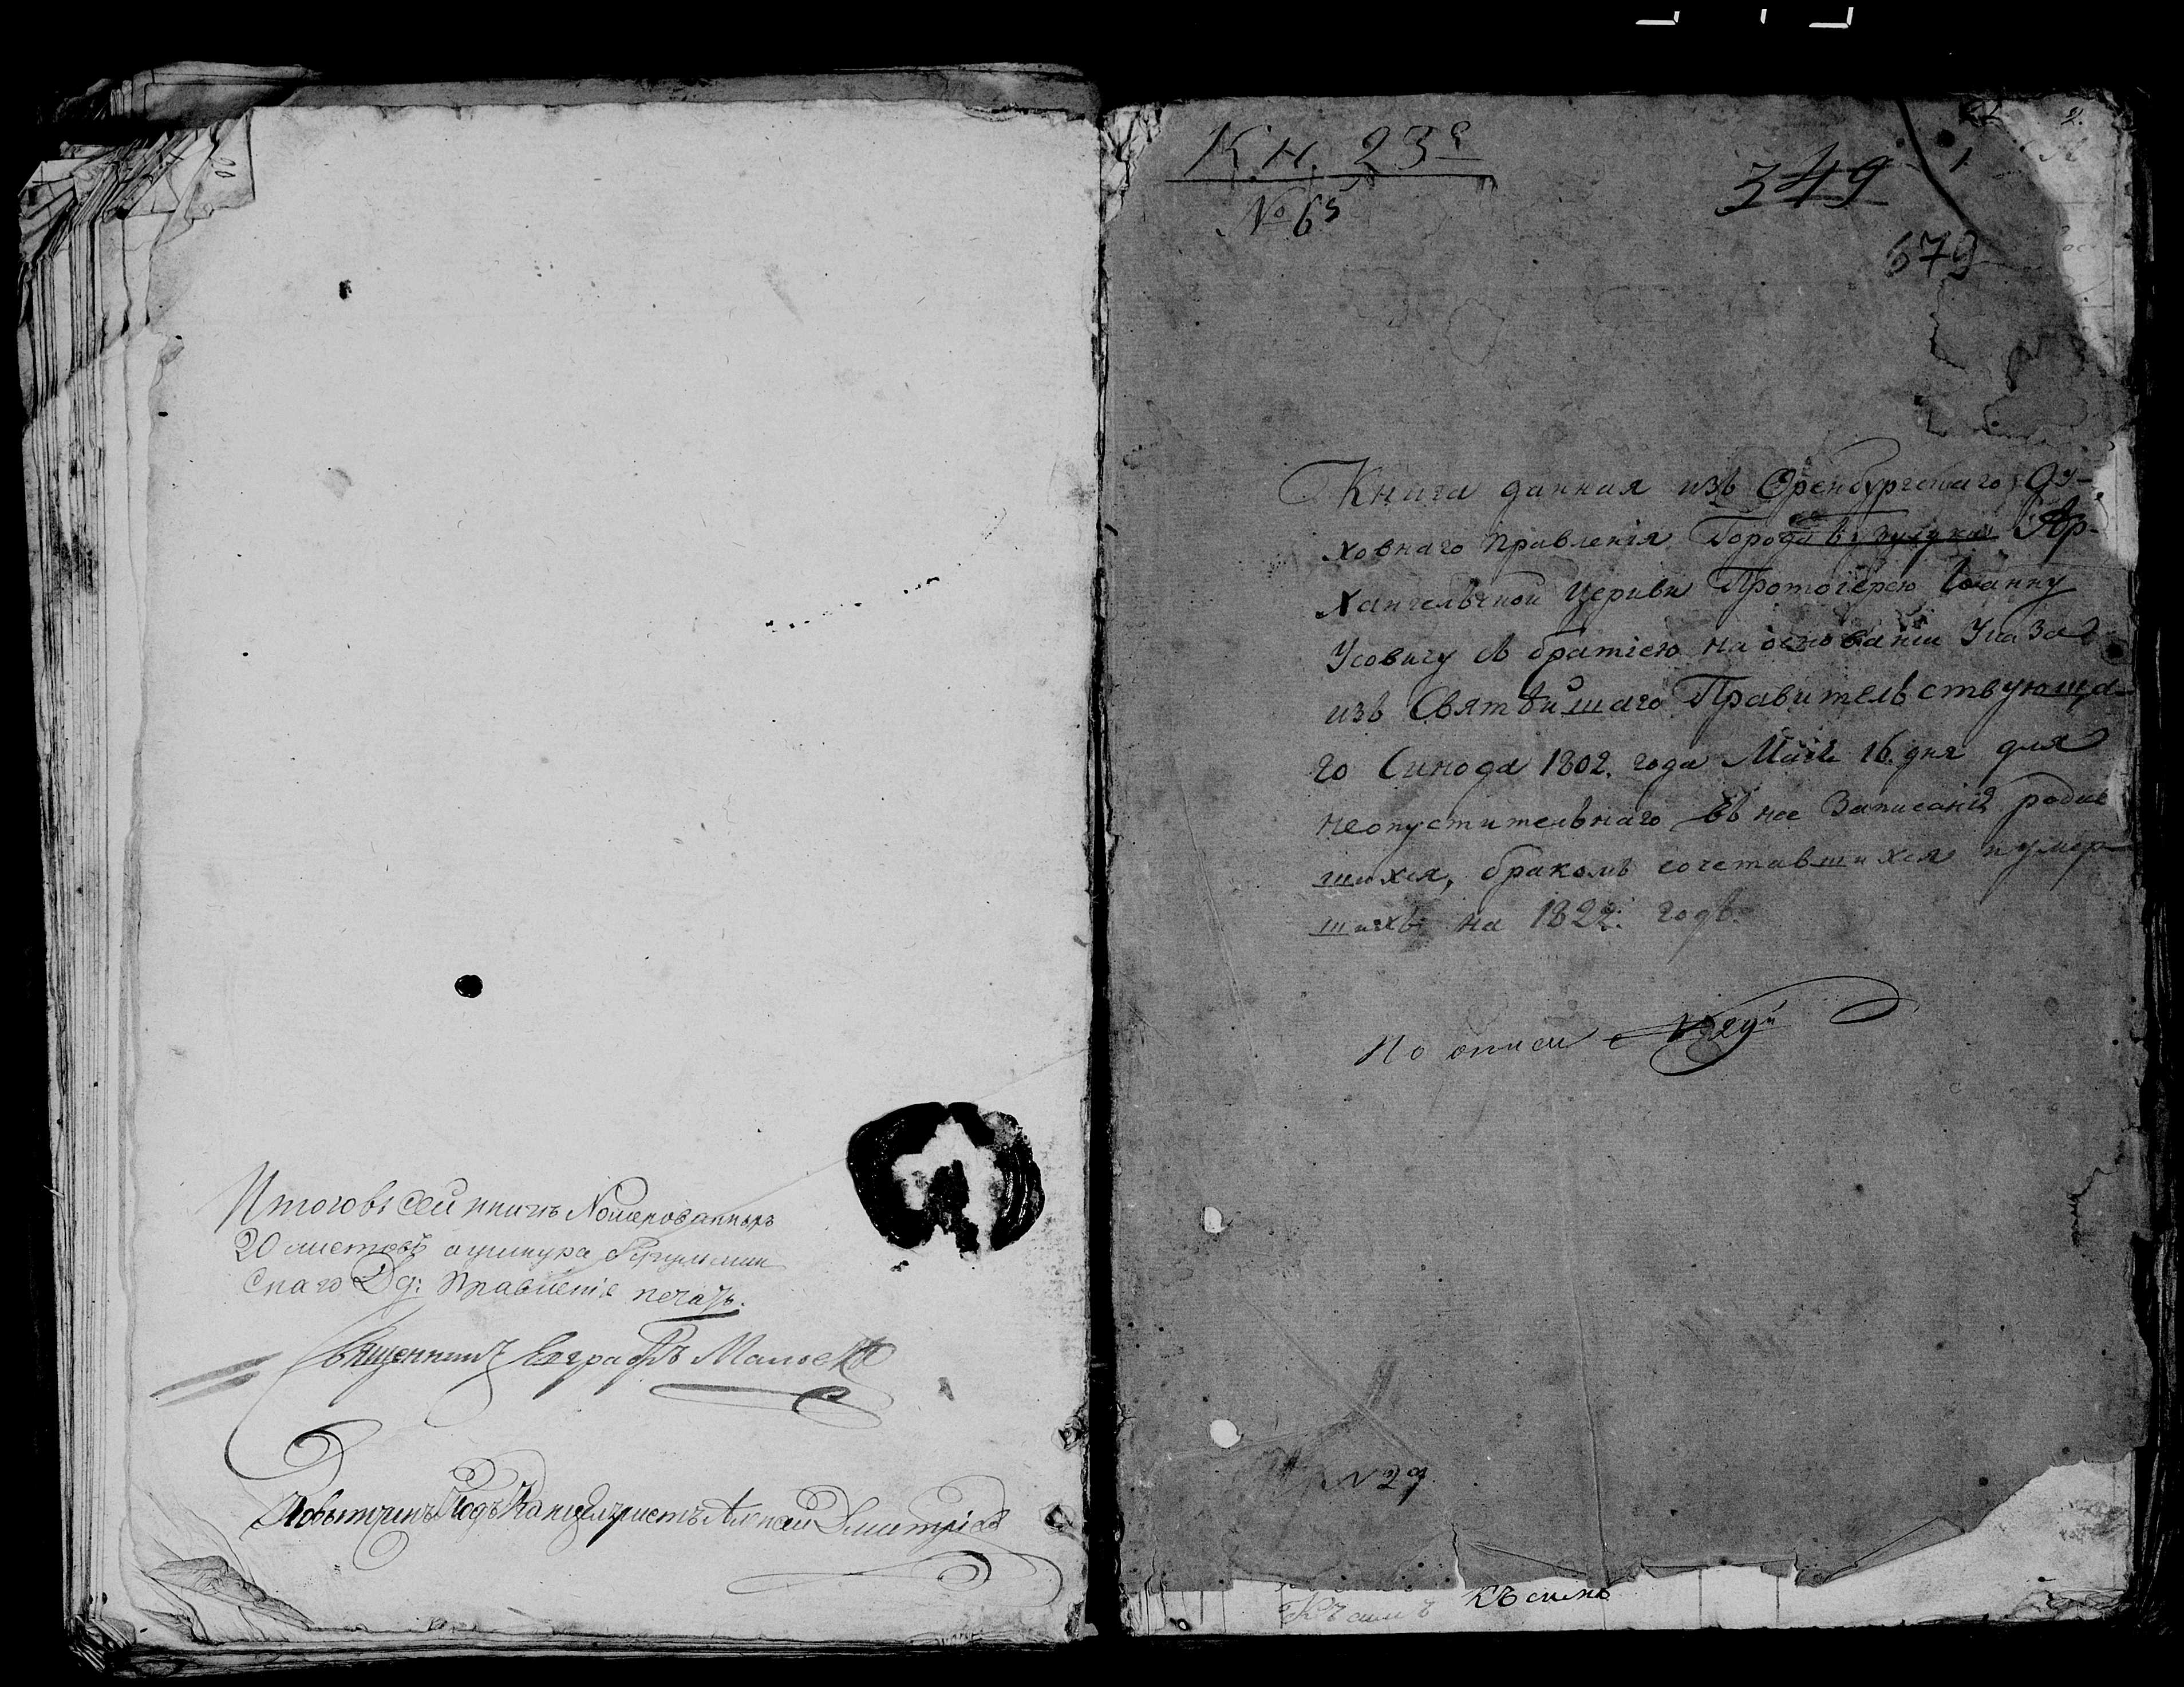 Итого въ сей книгѣ Номерованныхъ
20 листовъ а у шнура Бугульмин
скаго Дд: Правленіе печать.
Священникъ Евграфъ
Повытчикъ Подъ Канцеляристъ Алексѣй Дмитріев
Кн. 23
№ 65
349
679
2.
Книга данная изъ Оренбургскаго Ду-
ховнаго Правленія Города Ар-
хангельской Церкви Протоіерею Іоанну
Усовичу съ братіею на основаніи Указа
изъ Святѣйшаго Правительствующа-
го Синода 1802. года Маія 16. дня для
неопустительнаго въ нее Записанія родив
шихся, бракомъ сочетавшихся и умер-
шихъ на 1822. годъ.
По описи № 29й
№ 29.
Къ симъ
Къ симъ